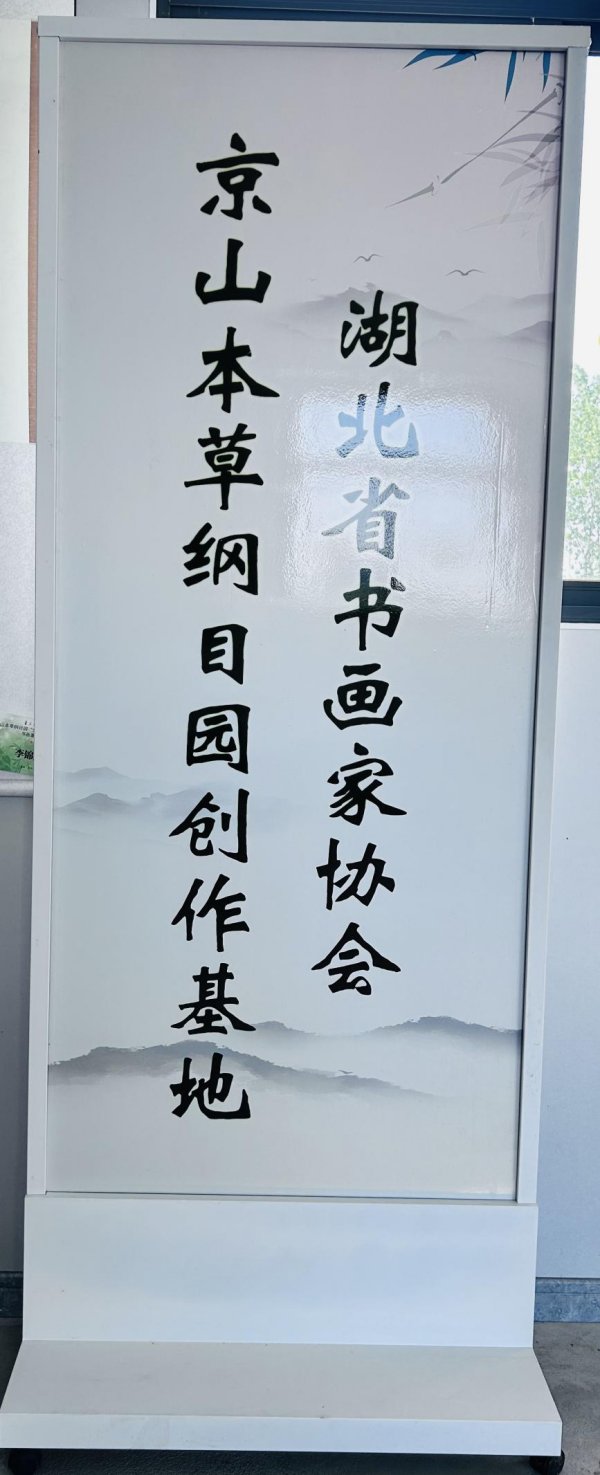 湖北省书画家协会
京山本草纲目园创作基地